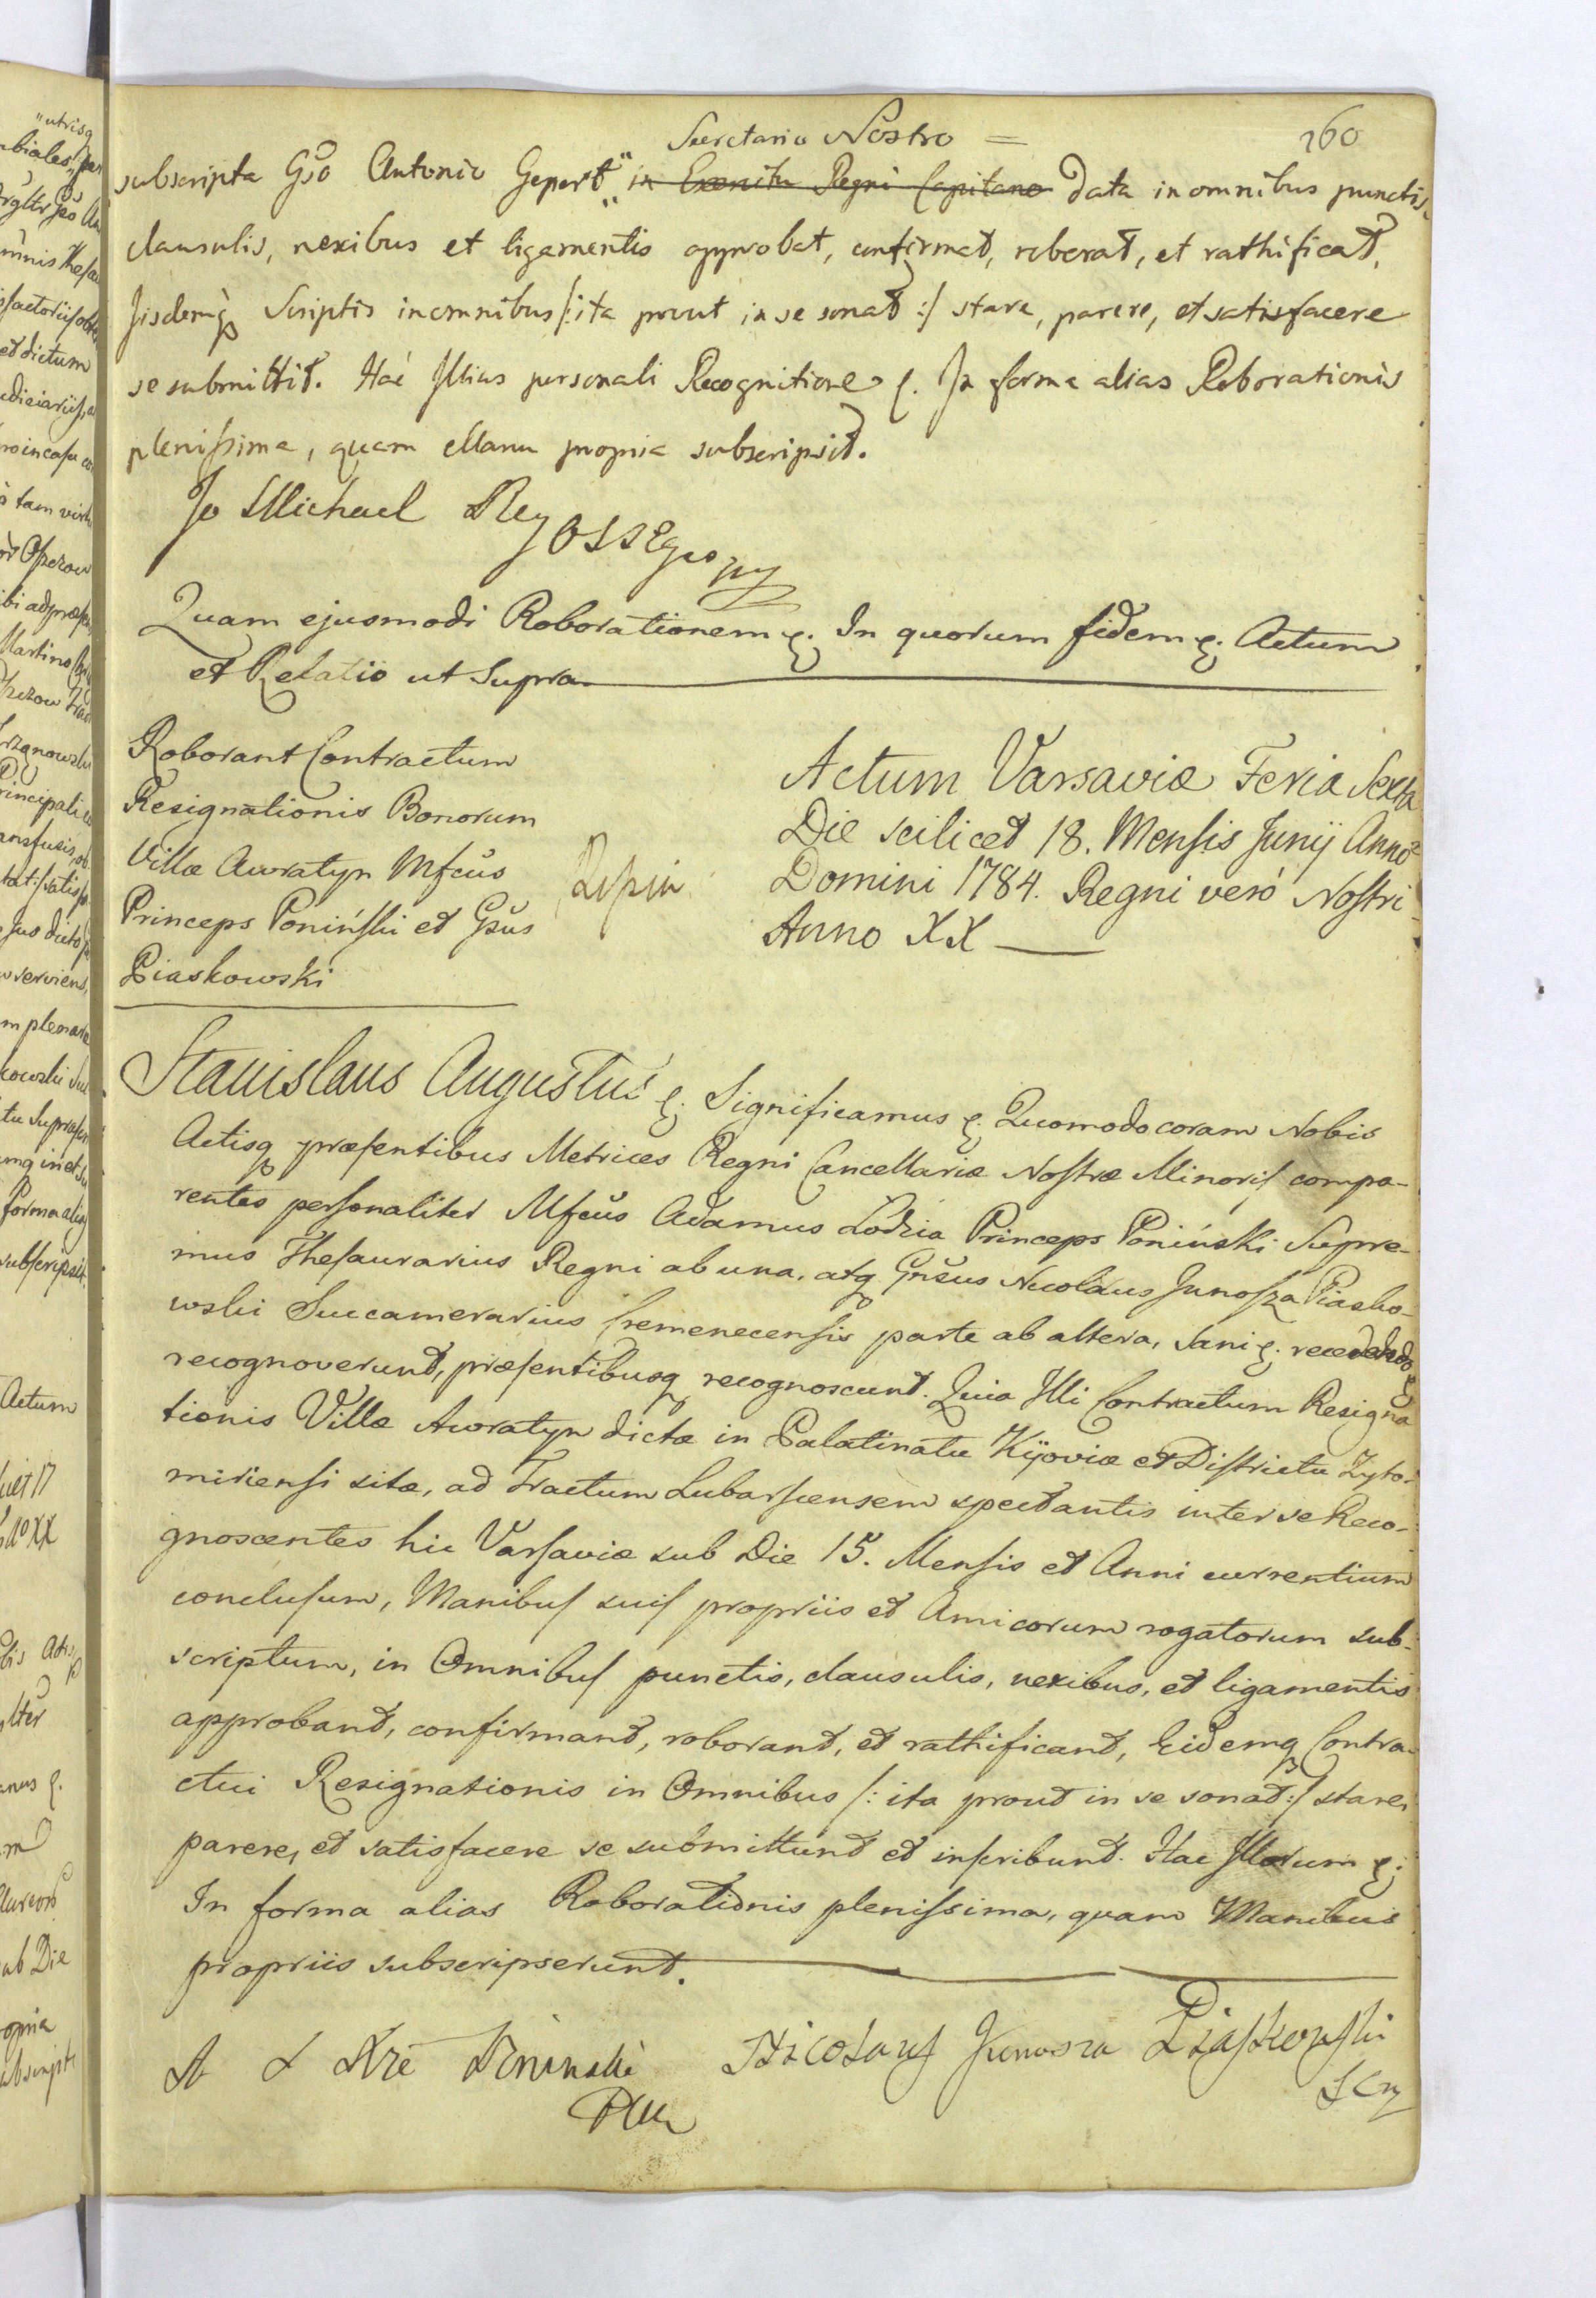 Secretario Nostro =
260
subscripta Gso Antonio Gepert " in Exercitu Regni Capitaneo data in omnibus punctis,
clausulis, nexibus et ligamentis approbat, confirmat, roborat, et rathificat,
Jisdemq Scriptis in omnibus /: ita prout in se sonat :/ stare, parere, et satisfacere
se submittit. Hac Illius personali Recognitione &. In forma alias Roborationis
plenissima, quam Manu propria subscripsit.
Jo Michael Rey
Quam ejusmodi Roborationem &. In quorum fidem &. Actum
et Relatio ut Supra
Roborant Contractum
Resignationis Bonorum
Villæ Aworatyn Mfcus
Princeps Poniński et Gsus
Piaskowski
Actum Varsaviæ Feria Sexta
Die scilicet 18. Mensis Junij Anno
Domini 1784. Regni verò Nostri
Anno XX
Stanislaus Augustus &. Significamus &. Quomodo coram Nobis
Actisq præsentibus Metrices Regni Cancellariæ Nostræ Minoris compa-
rentes personaliter Mfcus Adamus Lodzia Princeps Poniński Supre-
mus Thesaurarius Regni ab una, atq Gnsus Nicolaus Junosza Piasko-
wski Succamerarius Cremenecensis parte ab altera, Sani &. recedendo &
recognoverunt, præsentibusq recognoscunt. Quia Illi Contractum Resigna
tionis Villæ Aworatyn dictæ in Palatinatu Kijoviæ et Districtu Zyto-
miriensi sitæ, ad Tractum Lubarscensem spectantis inter se Reco-
gnoscentes hic Varsaviæ sub Die 15. Mensis et Anni currentium
conclusum, Manibus suis propriis et Amicorum rogatorum sub-
scriptum, in Omnibus punctis, clausulis, nexibus, et ligamentis
approbant, confirmant, roborant, et rathificant, Eidemq Contra-
ctui Resignationis in Omnibus /: ita prout in se sonat :/ stare,
parere, et satisfacere se submittunt et inscribunt. Hac Illorum &.
In forma alias Roborationis plenissima, quam Manibus
propriis subscripserunt.
A L Xże Poninski
Nicolaus Junosza Piaskowski